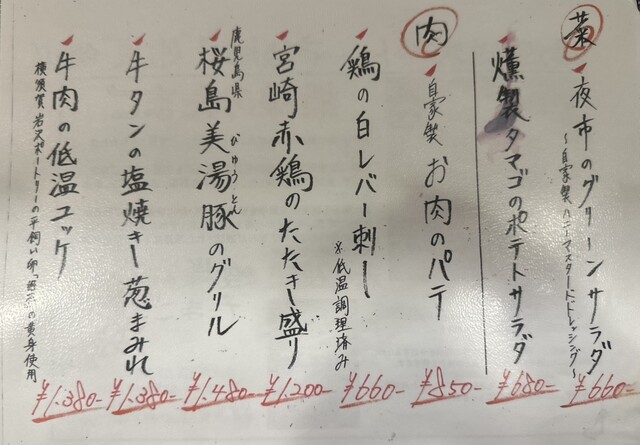 菜
夜市のグリーンサラダ
〜自家製ハニーマスタードドレッシング〜
¥660-
燻製タマゴのポテトサラダ
¥680-
肉
自家製 お肉のパテ
¥850-
鶏の白レバー刺し
※低温調理済み
¥660-
宮崎赤鶏のたたき盛り
¥1.200-
鹿児島県
桜島美湯豚のグリル
びゆうとん
¥1.480-
牛タンの塩焼き 葱まみれ
¥1.380-
牛肉の低温ユッケ
¥1.380-